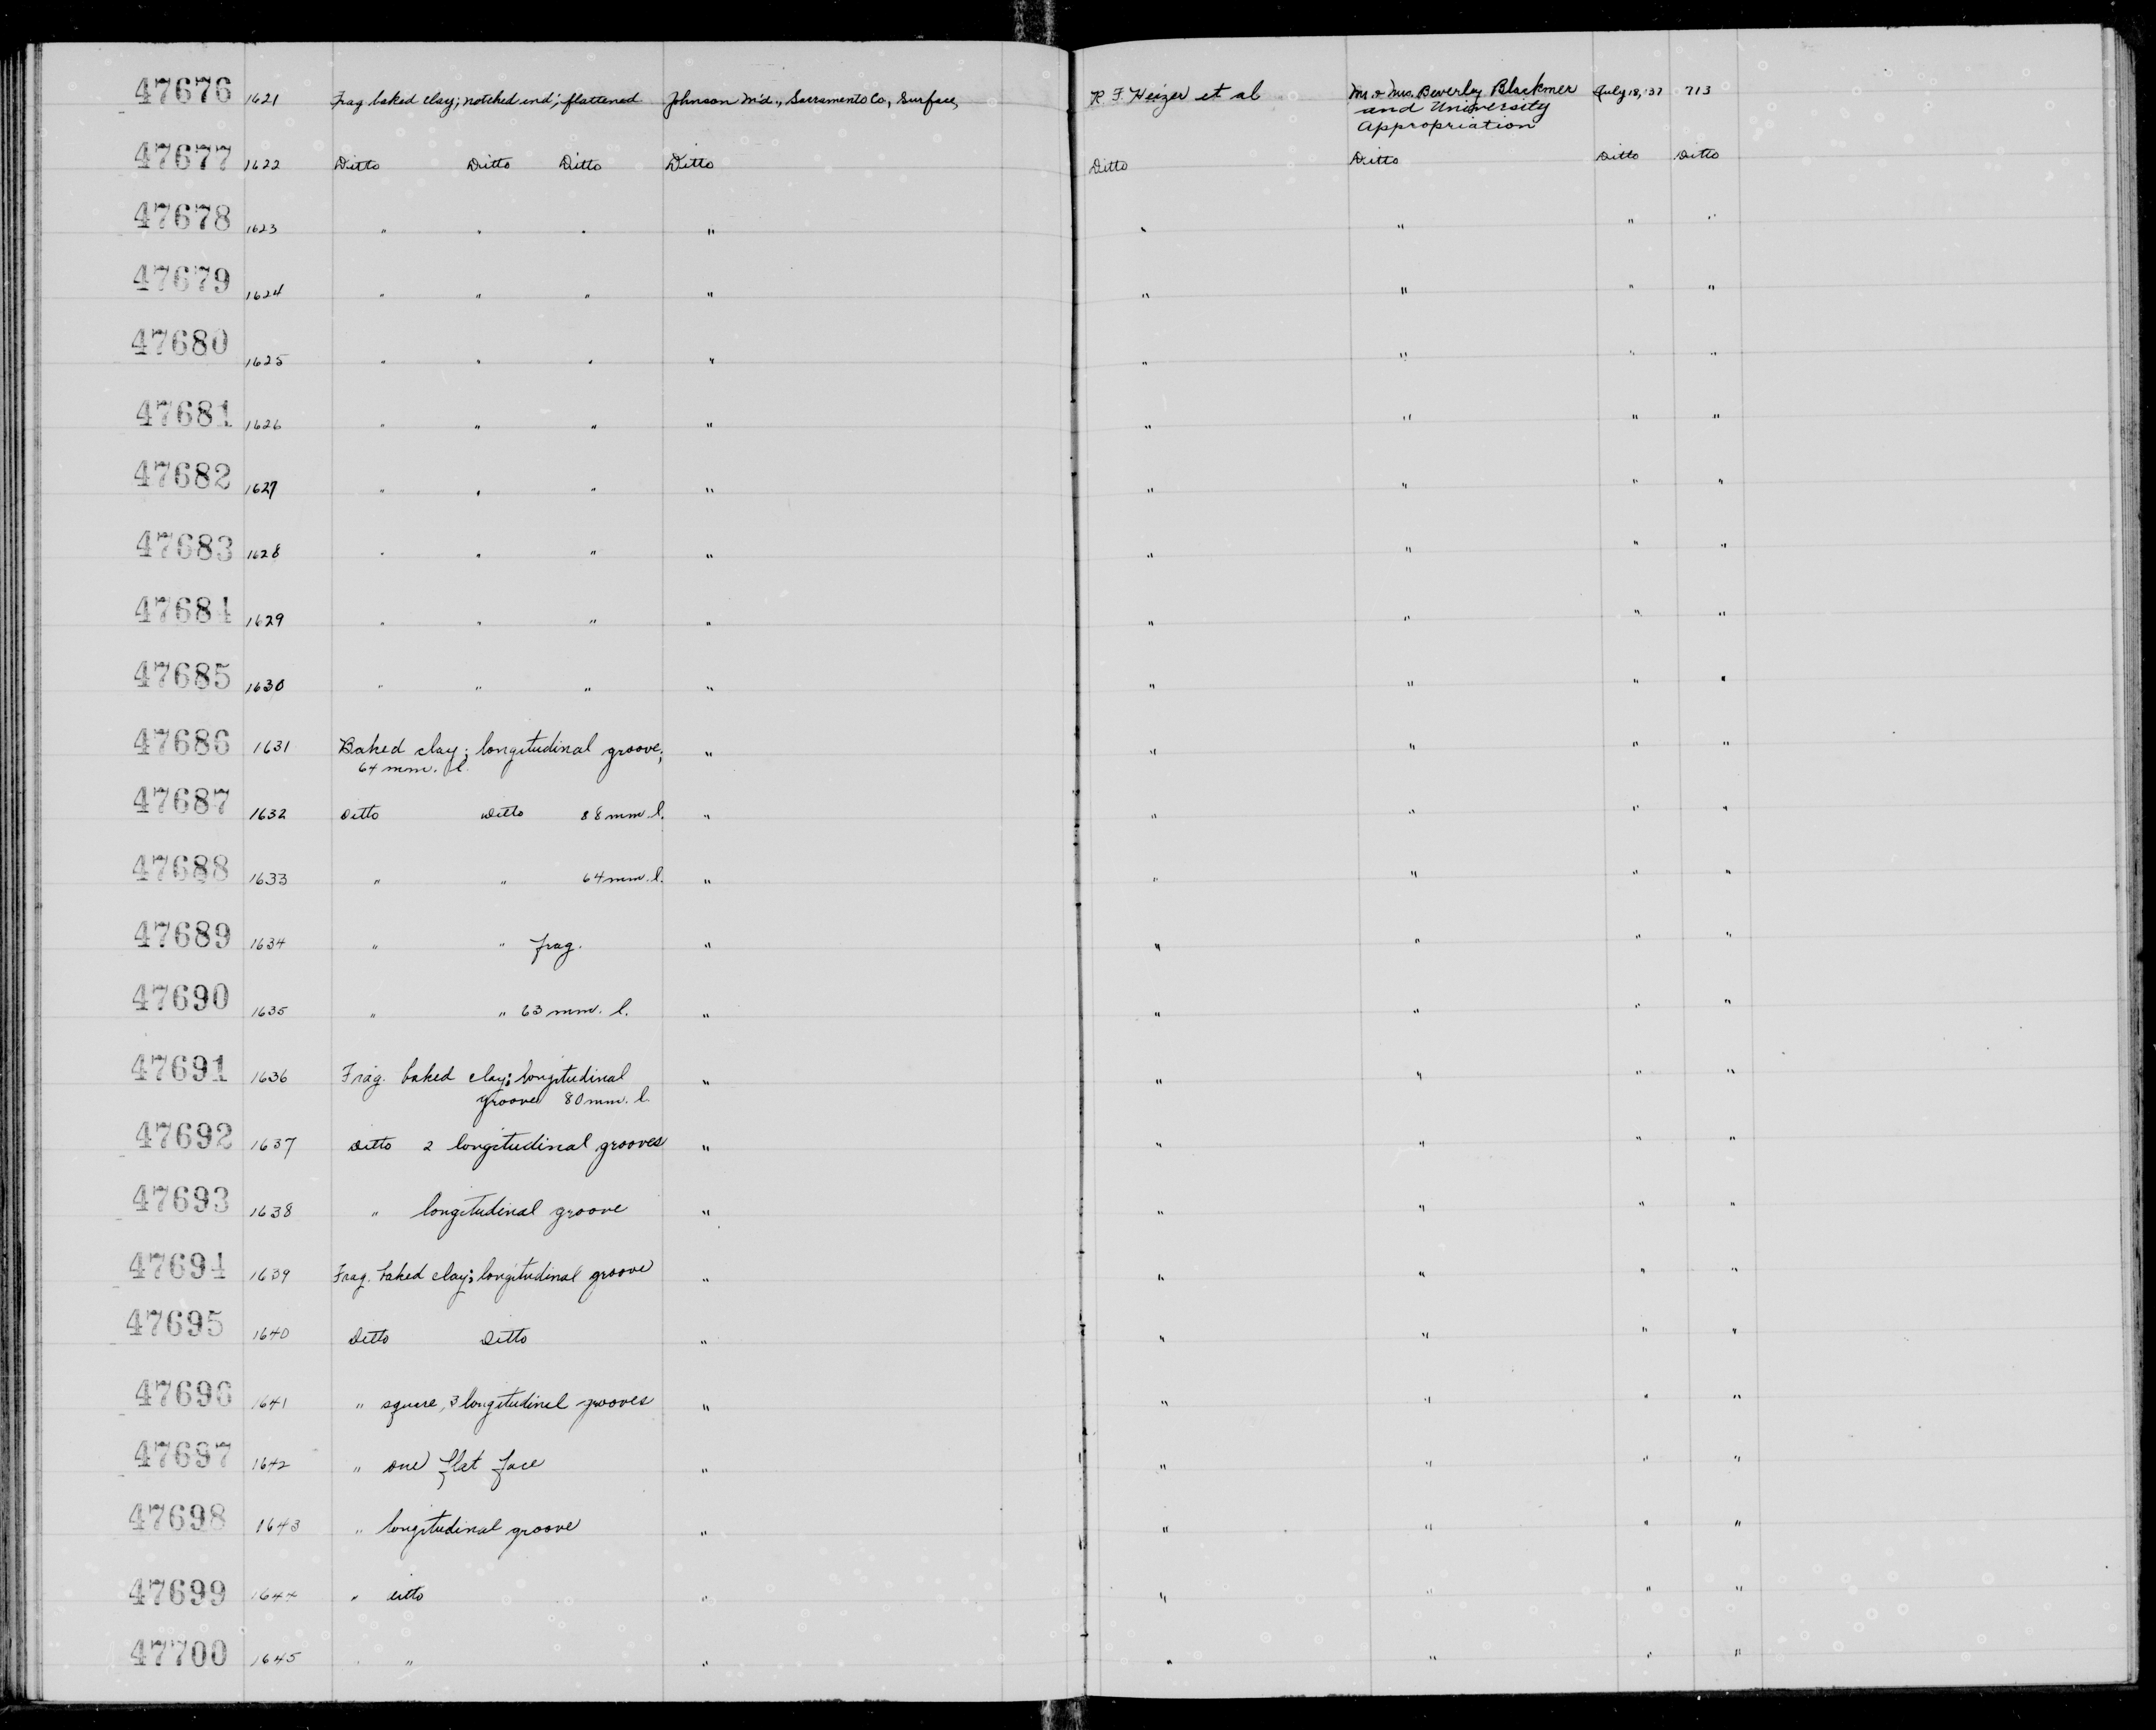 47676 1621 Frag baked clay; notched end; flattened Johnson M'd., Sacramento Co, Surface, R. F. Heizer et al Mr. & Mrs. Beverley Blackmer July 18, '37 713
and University
Appropriation
47677 1622 Ditto Ditto Ditto Ditto Ditto Ditto Ditto Ditto
47678 1623 " " " " " " " "
47679 1624 " " " " " " " "
47680 1625 " " " " " " " "
47681 1626 " " " " " " " "
47682 1627 " " " " " " " "
47683 1628 " " " " " " " "
47684 1629 " " " " " " " "
47685 1630 " " " " " " " "
47686 1631 Baked clay; longitudinal groove; " " " " "
64 mm. l.
47687 1632 Ditto Ditto 88 mm. l. " " " " "
47688 1633 " " 64 mm. l. " " " " "
47689 1634 " " frag. " " " " "
47690 1635 " " 63 mm. l. " " " " "
47691 1636 Frag. baked clay; longitudinal " " " " "
groove 80 mm. l.
47692 1637 Ditto 2 longitudinal grooves " " " " "
47693 1638 " longitudinal groove " " " " "
47694 1639 Frag. baked clay; longitudinal groove " " " " "
47695 1640 Ditto Ditto " " " " "
47696 1641 " square, 3 longitudinal grooves " " " " "
47697 1642 " one flat face " " " " "
47698 1643 " longitudinal groove " " " " "
47699 1644 " ditto " " " " "
47700 1645 " " " " " " "